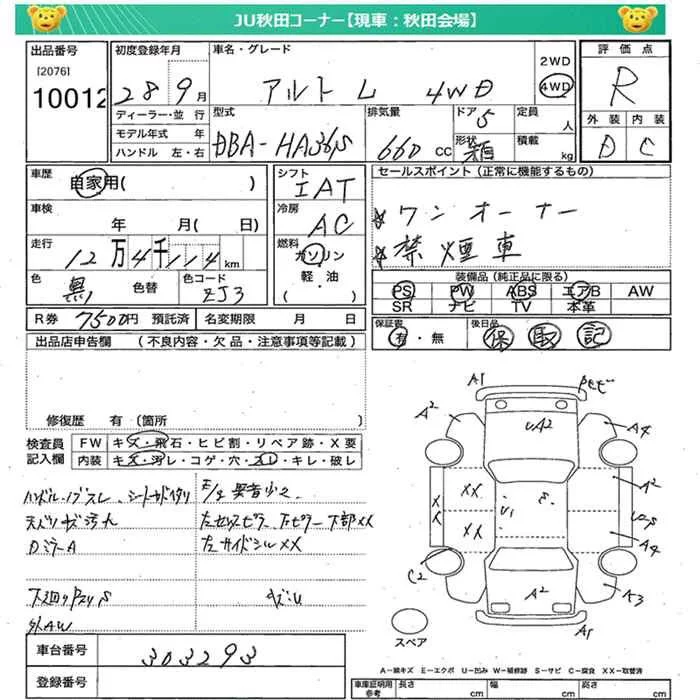 JU秋田コーナー【現車：秋田会場】
出品番号
[2076]
10012
初度登録年月
28 9月
ディーラー・並 行
モデル年式 年
ハンドル 左・右
車名・グレード
アルト L 4WD
2WD
4WD
型式
DBA-HA36S
排気量
660 cc
ドア 5
形状
箱
定員
人
積載
kg
評価点
R
外装 内装
D C
車歴
自家用( )
車検
年 月( 日)
走行
12万4千114km
色
黒
色替
色コード
ZJ3
R券 7500円 預託済 名変期限 月 日
シフト
IAT
冷房
AC
燃料
ガソリン
軽・油
( )
セールスポイント (正常に機能するもの)
ワンオーナー
禁煙車
装備品 (純正品に限る)
PS PW ABS エアB AW
SR ナビ TV 本革
保証書
有・無
後日品
保 取 記
出品店申告欄 (不良内容・欠品・注意事項等記載)
修復歴 有 (箇所 )
検査員
記入欄
FW キズ・飛石・ヒビ割・リペア跡・X要
内装 キズ・汚レ・コゲ・穴・スレ・キレ・破レ
ハンドル・ノブスレ、
天バリ
汚れ
DミラーA
左サイドシルXX
下部XX
S
外AW
車台番号
303293
登録番号
A1
A2
A2
A4
A2
XX
XX
XX
S
U1
A4
C2
A2
A3
A1
スペア
A-線キズ E-エクボ U-凹み W-補修跡 S-サビ C-腐食 XX-取替済
車庫証明用
参考
長さ cm 幅 cm 高さ cm